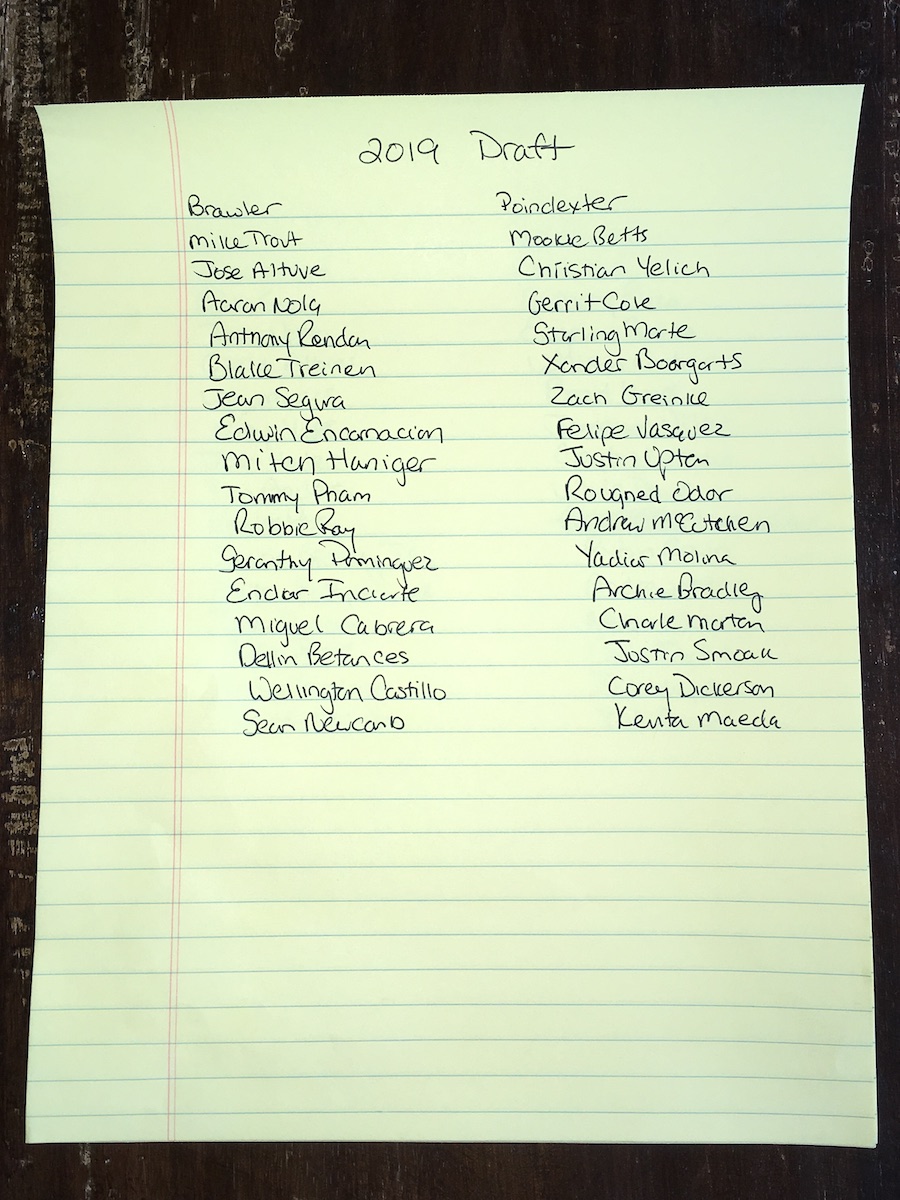 2019 Draft
Brawler Poindexter
Mike Trout Mookie Betts
Jose Altuve Christian Yelich
Aaron Nola Gerrit Cole
Anthony Rendon Starling Marte
Blake Treinen Xander Boorgarts
Jean Segura Zach Greinke
Edwin Encarnacion Felipe Vasquez
Mitch Haniger Justin Upton
Tommy Pham Rougned Odor
Robbie Ray Andrew McCutchen
Seranthy Dominguez Yadier Molina
Endiar Inciarte Archie Bradley
Miguel Cabrera Charle Morton
Dellin Betances Justin Smoak
Wellington Castillo Corey Dickerson
Sean Newcomb Kenta Maeda